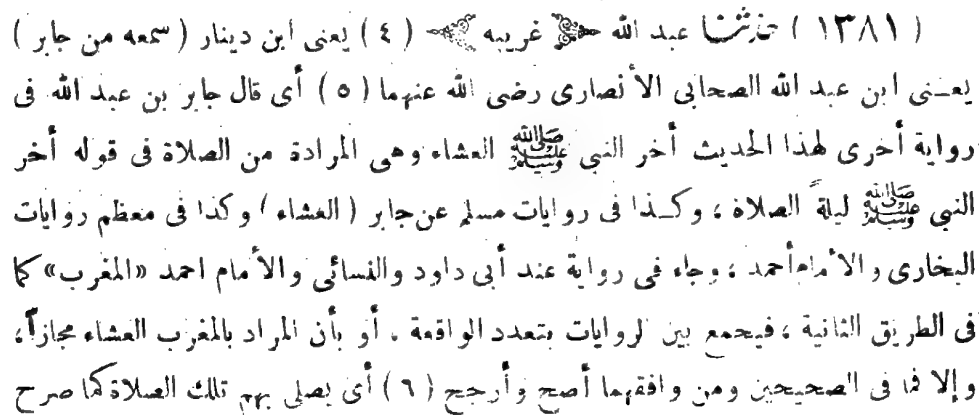 ( ١٣٨١ ) حدثنا عبد الله ﴿ غريبه ﴾ ( ٤ ) يعنى ابن دينار ( سمعه من جابر )
يعـنى ابن عبد الله الصحابى الأنصارى رضى الله عنهما ( ٥ ) أى قال جابر بن عبد الله فى
رواية أخرى لهذا الحديث أخر النبى ﷺ العشاء وهى المرادة من الصلاة فى قوله أخر
النبى ﷺ ليلةً الصلاة ، وكـذا فى روايات مسلم عن جابر ( العشاء ) وكذا فى معظم روايات
البخارى والأمام أحمد ، وجاء فى رواية عند أبى داود والنسائى والأمام احمد «المغرب» كما
فى الطريق الثانية ، فيجمع بين الروايات بتعدد الواقعة . أو بأن المراد بالمغرب العشاء مجازاً ،
وإلا فما فى الصحيحين ومن وافقهما أصح وأرجح ( ٦ ) أى يصلى بهم تلك الصلاة كما صرح